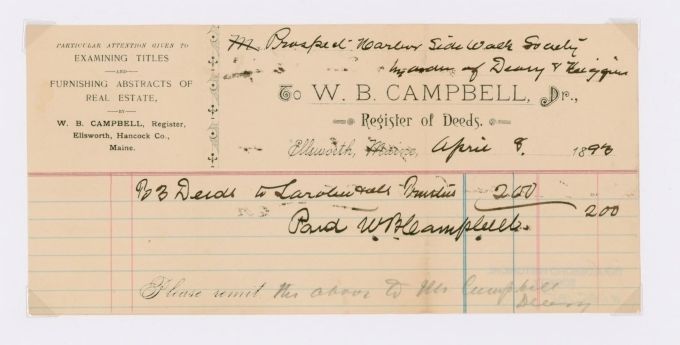 PARTICULAR ATTENTION GIVEN TO
EXAMINING TITLES
AND
FURNISHING ABSTRACTS OF
REAL ESTATE,
BY
W. B. CAMPBELL, Register,
Ellsworth, Hancock Co.,
Maine.
M Prospect Harbor Side Walk Society
by order of Deasy & Higgins
To W. B. CAMPBELL, Dr.,
Register of Deeds.
Ellsworth, Maine, April 8, 1898
To 3 Deeds to 200
200
Paid W. B. Campbell.
Please remit the above to Mr Campbell
Deasy